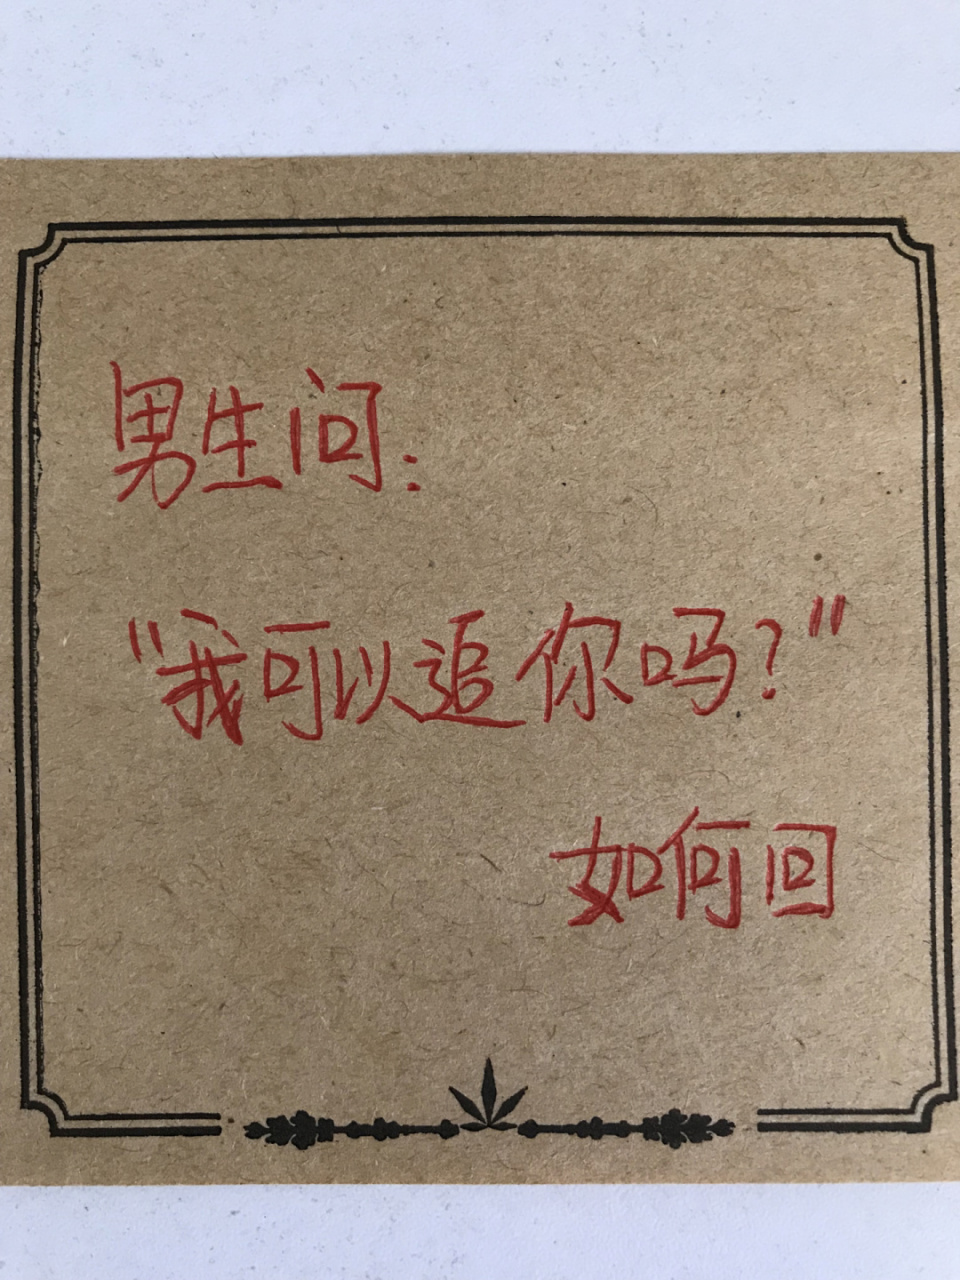 男生问:
"我可以追你吗?"
如何回